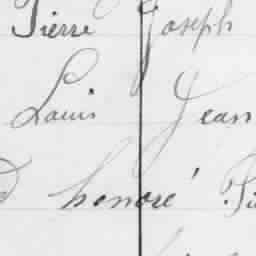 Pierre Joseph
Louis Jean
honoré